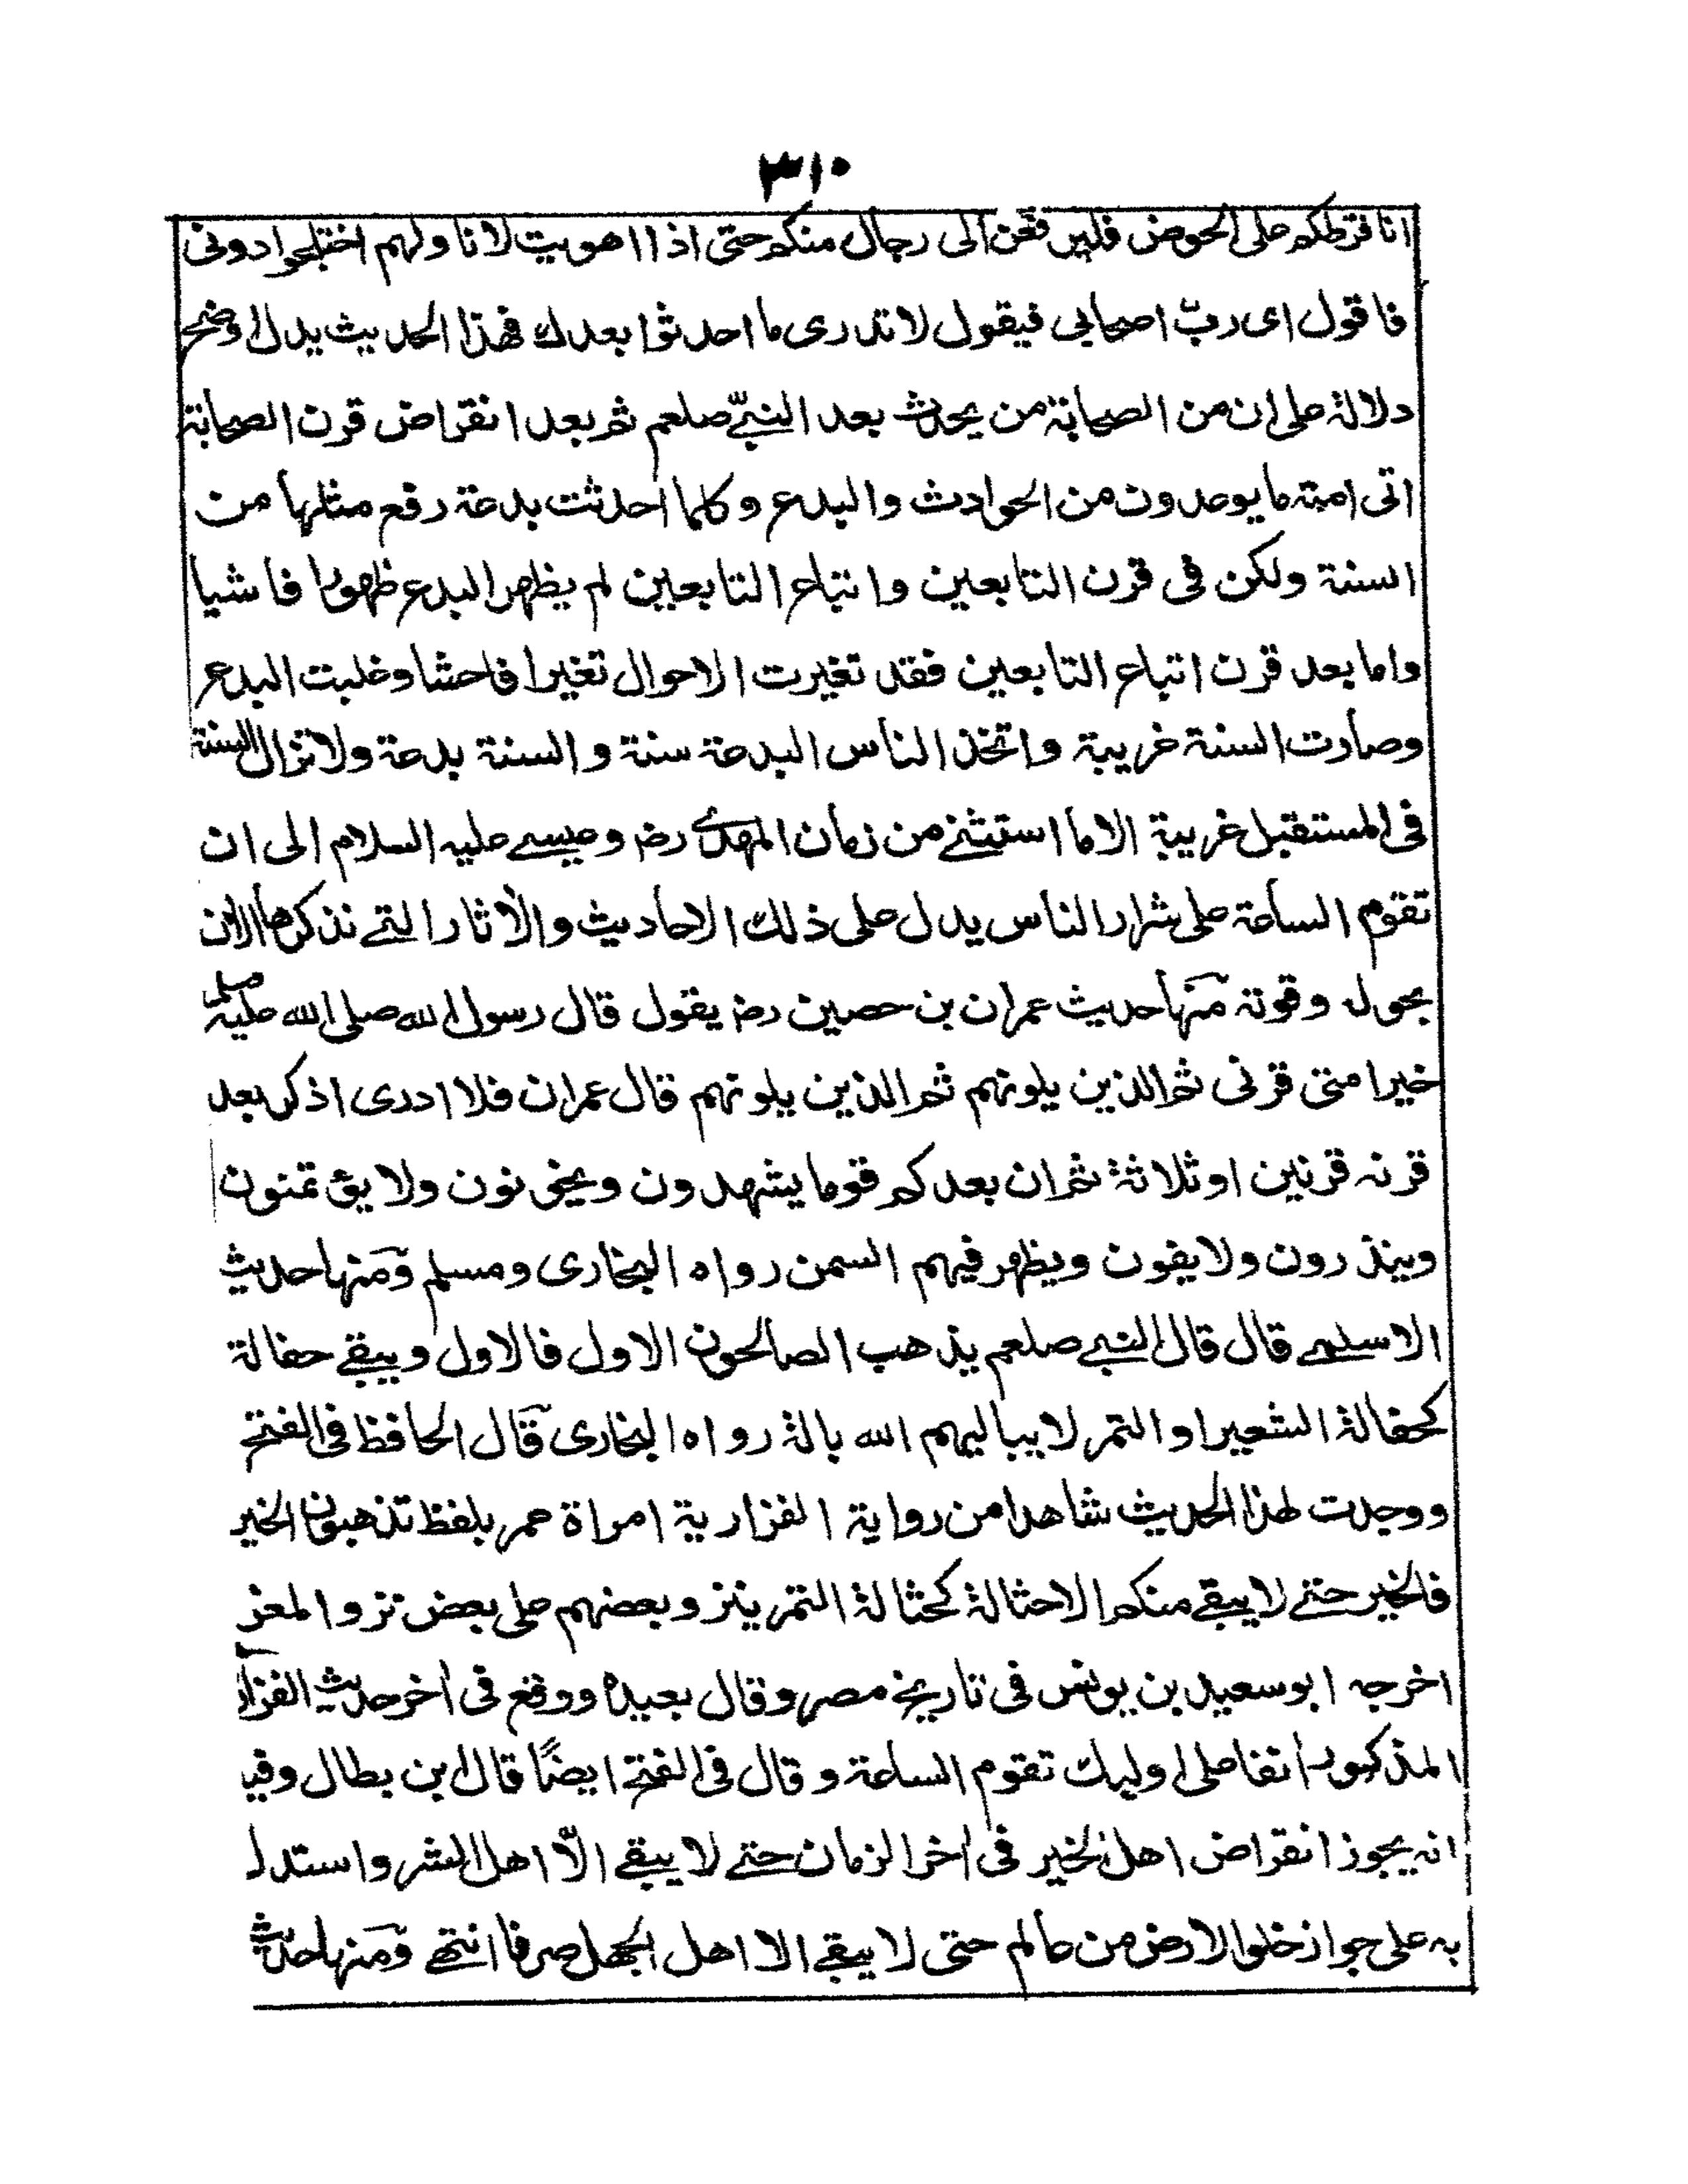 ٣١٠
انا فرطكم على الحوض فليرفعن الى رجال منكم حتى اذا اهويت لاناولهم اختلجوا دونى
فاقول اى ربّ اصحابى فيقول لا تدرى ما احدثوا بعدك فهذا الحديث يدل اوضح
دلالة على ان من الصحابة من يحدث بعد النبىّ صلعم ثم بعد انقراض قرن الصحابة
اتى امته ما يوعدون من الحوادث والبدع وكلما احدثت بدعة رفع مثلها من
السنة ولكن فى قرن التابعين واتباع التابعين لم يظهر البدع ظهورا فاشيا
واما بعد قرن اتباع التابعين فقد تغيرت الاحوال تغيرا فاحشا وغلبت البدع
وصارت السنة غريبة واتخذ الناس البدعة سنة والسنة بدعة ولا تزال السنة
فى المستقبل غريبة الا ما استثنے من زمان المهدے رضـ وعيسے عليه السلام الى ان
تقوم الساعة على شرار الناس يدل على ذلك الاحاديث والاثار التے نذكرها الان
بحوله وقوته منها حديث عمران بن حصين رضـ يقول قال رسول الله صلى الله عليه وسلم
خير امتى قرنى ثم الذين يلونهم ثم الذين يلونهم قال عمران فلا ادرى اذكر بعد
قرنه قرنين او ثلاثة ثم ان بعدكم قوما يشهدون ويخونون ولا يؤتمنون
وينذرون ولا يفون ويظهر فيهم السمن رواه البخارى ومسلم ومنها حديث
الاسلمے قال قال النبے صلعم يذهب الصالحون الاول فالاول ويبقے حفالة
كحفالة الشعير او التمر لا يباليهم الله بالة رواه البخارى قال الحافظ فى الفتح
ووجدت لهذا الحديث شاهدا من رواية الفزارية امراة عمر بلفظ تذهبون الخير
فالخير حتے لا يبقے منكم الا حثالة كحثالة التمر ينزو بعضهم على بعض نزو المعز
اخرجه ابو سعيد بن يونس فى تاريخ مصر وقال بعيده ووقع فى اخر حديث الفزارية
المذكور انفا على اوليك تقوم الساعة وقال فى الفتح ايضًا قال ابن بطال وفيه
انه يجوز انقراض اهل الخير فى اخر الزمان حتے لا يبقے الّا اهل الشر واستدل
به على جواز خلو الارض من عالم حتى لا يبقے الا اهل الجهل صرفا انتهے ومنها حديث